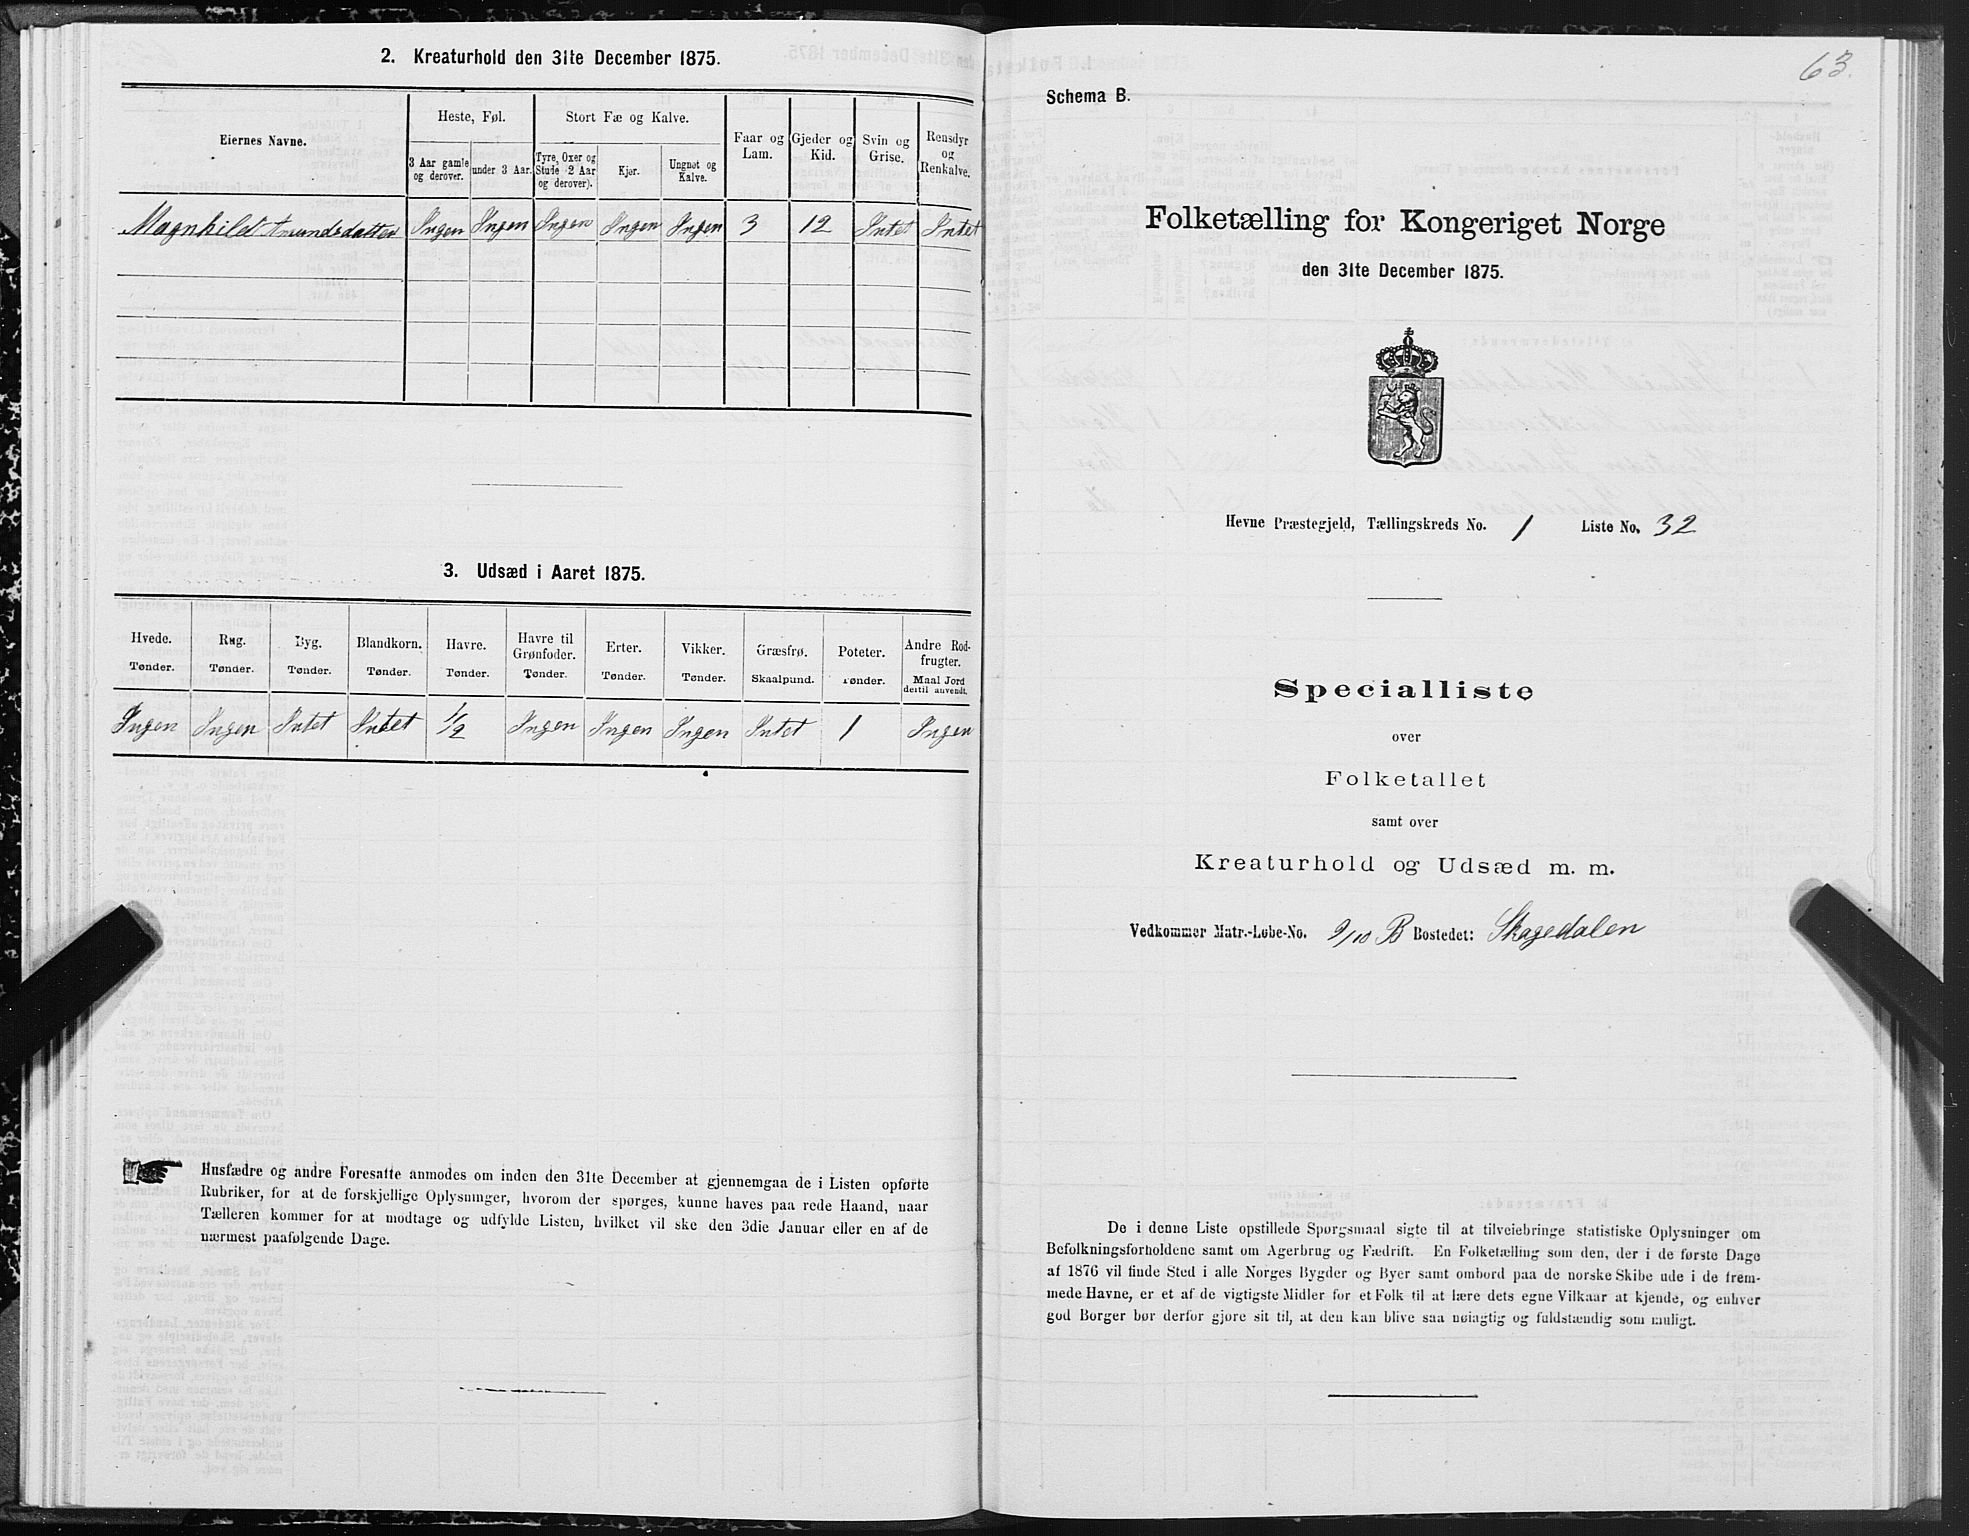 2. Kreaturhold den 31te December 1875.
Eiernes Navne.
Heste, Føl.
Stort Fæ og Kalve.
Faar og Lam.
Gjeder og Kid.
Svin og Grise.
Rensdyr og Renkalve.
3 Aar gamle og derover.
under 3 Aar.
Tyre, Oxer og Stude (2 Aar og derover).
Kjør.
Ungnøt og Kalve.
Magnhild Amundsdatter Ingen Ingen Ingen Ingen Ingen 3 12 Intet Intet
3. Udsæd i Aaret 1875.
Hvede. Rug. Byg. Blandkorn. Havre. Havre til Grønfoder. Erter. Vikker. Græsfrø. Poteter. Andre Rodfrugter.
Tønder. Tønder. Tønder. Tønder. Tønder. Tønder. Tønder. Tønder. Skaalpund. Tønder. Maal Jord dertil anvendt.
Ingen Ingen Intet Intet 1/2 Ingen Ingen Ingen Intet 1 Ingen
Husfædre og andre Foresatte anmodes om inden den 31te December at gjennemgaa de i Listen opførte
Rubriker, for at de forskjellige Oplysninger, hvorom der spørges, kunne haves paa rede Haand, naar
Tælleren kommer for at modtage og udfylde Listen, hvilket vil ske den 3die Januar eller en af de
nærmest paafølgende Dage.
63.
Schema B.
Folketælling for Kongeriget Norge
den 31te December 1875.
Hevne Præstegjeld, Tællingskreds No. 1 Liste No. 32
Specialliste
over
Folketallet
samt over
Kreaturhold og Udsæd m. m.
Vedkommer Matr.-Løbe-No. 9/10 B Bostedet: Skagedalen
De i denne Liste opstillede Spørgsmaal sigte til at tilveiebringe statistiske Oplysninger om
Befolkningsforholdene samt om Agerbrug og Fædrift. En Folketælling som den, der i de første Dage
af 1876 vil finde Sted i alle Norges Bygder og Byer samt ombord paa de norske Skibe ude i de frem-
mede Havne, er et af de vigtigste Midler for et Folk til at lære dets egne Vilkaar at kjende, og enhver
god Borger bør derfor gjøre sit til, at den kan blive saa nøiagtig og fuldstændig som muligt.